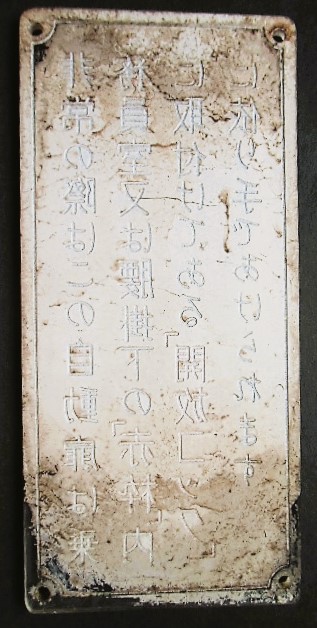 非常の際はこの自動扉は乗
務員室又は腰掛下の「赤枠」内
に取付けてある「開放コック」
に依り手であけられます